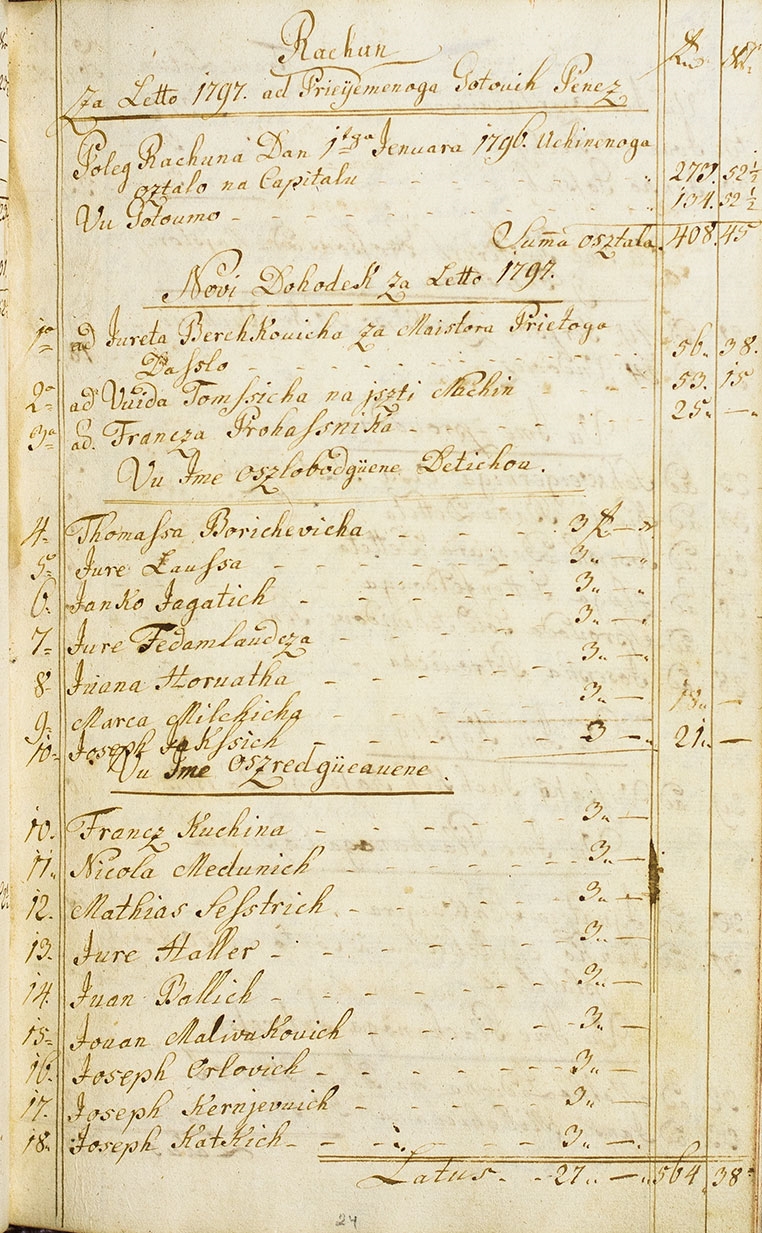 Rachun
Za Letto 1797. ad Prieÿemenoga Gotovih Penez
fl xr
Poleg Rachuna Dan 1ga Jenuara 1796. Uchinenoga
osztalo na Capitalu - - - 273. 52½
Vu Gotoumo - - - 134. 52½
Suma osztala. 408. 45
Novi Dohodek za Letto 1797.
1o ad Jureta Berchkovicha za Maistora Prietoga
Dasslo - - - 56. 38.
2o ad Vuida Tomssicha na jszti Nachin - 53. 15
3o ad. Francza Prohassnika - - - 25. —
Vu Jme oszlobodgüene Detichou.
4. Thomassa Borichevicha - - - 3 fl —
5. Jure Laussa - - - 3. —
6. Janko Jagatich - - - 3. —
7. Jure Fedamlaudcza - - - 3. —
8. Juana Horuatha - - - 3. —
9. Marca Milchicha - - - 3. — 18. —
10. Joseph Jakssich - - - 3 — 21. —
Vu Jme oszredgüeauene.
10. Francz Kuchina - - - 3. —
11. Nicola Medunich - - - 3. —
12. Mathias Sesstrich - - - 3. —
13. Jure Haller - - - 3. —
14. Juan Ballich - - - 3. —
15. Jouan Malivukovich - - - 3. —
16. Joseph Orlovich - - - 3. —
17. Joseph Kernjevuich - - - 3. —
18. Joseph Katkich - - - 3. —
Latus - - 27. — 564. 38
24